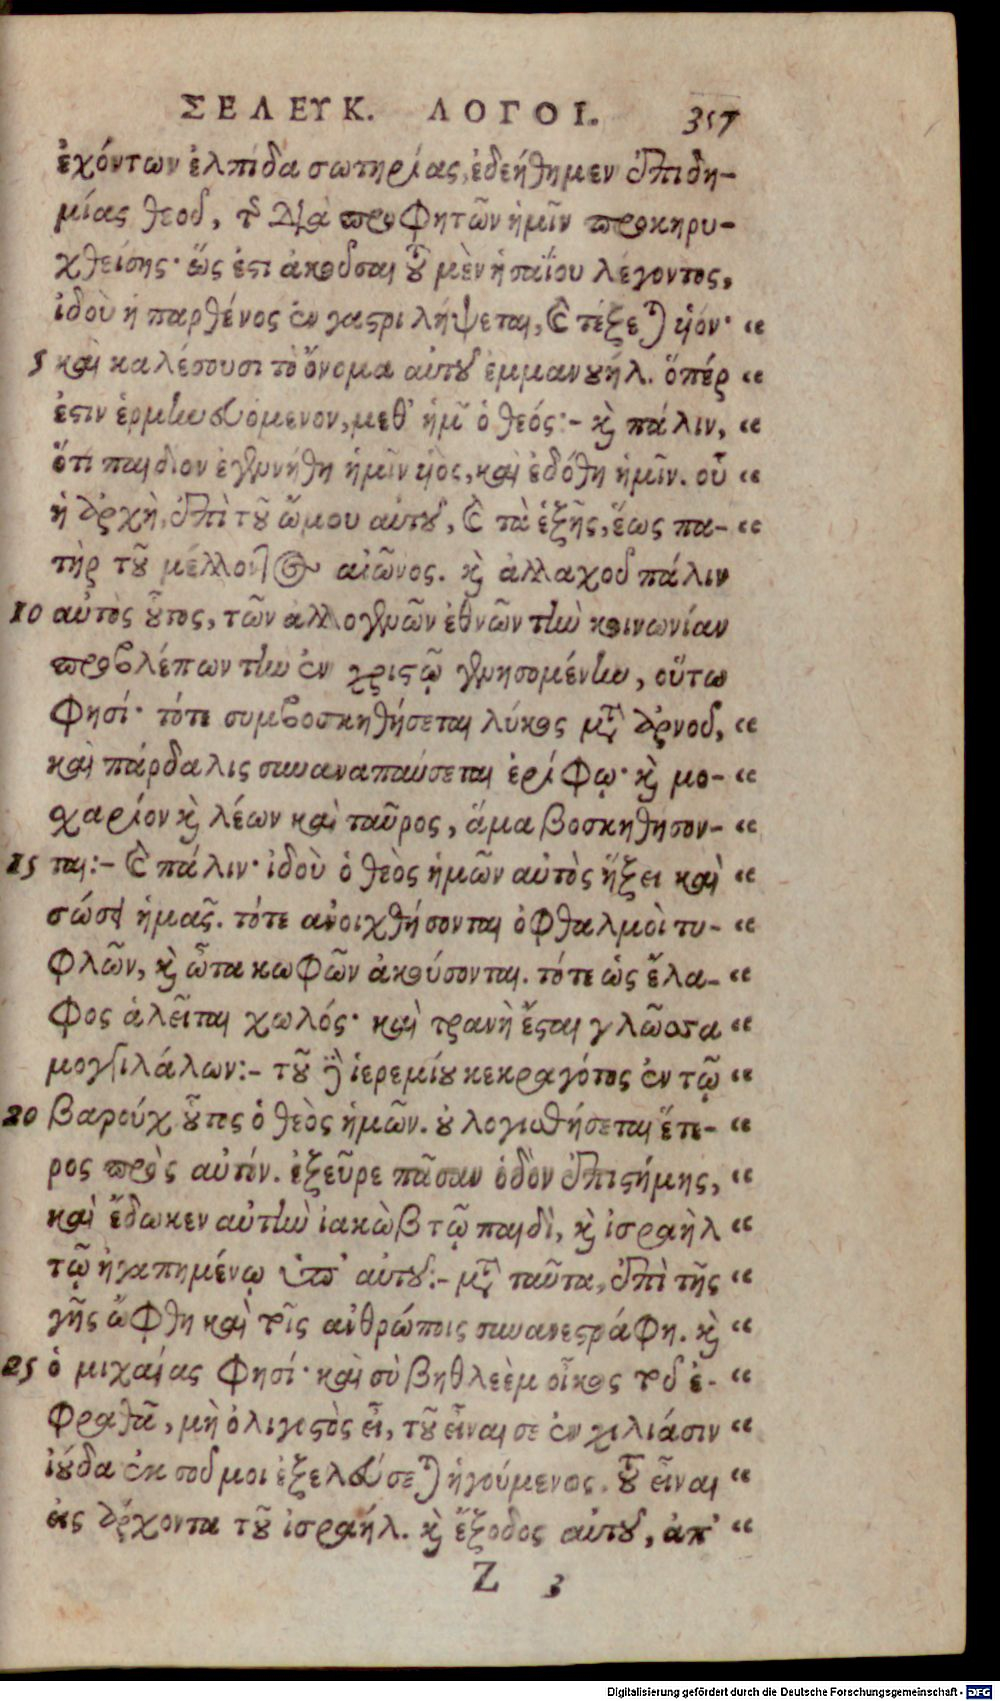 ΣΕΛΕΥΚ. ΛΟΓΟΙ. 357
ἐχόντων ἐλπίδα σωτηρίας, ἐδεήθημεν ἐπιδη-
μίας θεοῦ, τῆς διὰ προφητῶν ἡμῖν προκηρυ-
χθείσης· ὥς ἐστι ἀκοῦσαι τοῦ μὲν ἡσαΐου λέγοντος,
ἰδοὺ ἡ παρθένος ἐν γαστρὶ λήψεται, καὶ τέξεται υἱόν· “
5 καὶ καλέσουσι τὸ ὄνομα αὐτοῦ ἐμμανουήλ. ὅπέρ “
ἐστιν ἑρμηνευόμενον, μεθ' ἡμῶν ὁ θεός:- καὶ πάλιν, “
ὅτι παιδίον ἐγεννήθη ἡμῖν υἱὸς, καὶ ἐδόθη ἡμῖν. οὗ “
ἡ ἀρχὴ, ἐπὶ τοῦ ὤμου αὐτοῦ, καὶ τὰ ἑξῆς, ἕως πα- “
τὴρ τοῦ μέλλοντος αἰῶνος. καὶ ἀλλαχοῦ πάλιν
10 αὐτὸς οὗτος, τῶν ἀλλογενῶν ἐθνῶν τὴν κοινωνίαν
προβλέπων τὴν ἐν χριστῷ γενησομένην, οὕτω
φησί· τότε συμβοσκηθήσεται λύκος μετὰ ἀρνοῦ, “
καὶ πάρδαλις συναναπαύσεται ἐρίφῳ· καὶ μο- “
σχαρίον καὶ λέων καὶ ταῦρος, ἅμα βοσκηθήσον- “
15 ται:- καὶ πάλιν· ἰδοὺ ὁ θεὸς ἡμῶν αὐτὸς ἥξει καὶ “
σώσει ἡμᾶς. τότε ἀνοιχθήσονται ὀφθαλμοὶ τυ- “
φλῶν, καὶ ὦτα κωφῶν ἀκούσονται. τότε ὡς ἔλα- “
φος ἁλεῖται χωλός· καὶ τρανὴ ἔσται γλῶσσα “
μογγιλάλων:- τοῦ δὲ ἱερεμίου κεκραγότος ἐν τῷ “
20 βαρούχ οὗτος ὁ θεὸς ἡμῶν. οὐ λογισθήσεται ἕτε- “
ρος πρὸς αὐτόν. ἐξεῦρε πᾶσαν ὁδὸν ἐπιστήμης, “
καὶ ἔδωκεν αὐτὴν ἰακὼβ τῷ παιδὶ, καὶ ἰσραὴλ “
τῷ ἠγαπημένῳ ὑπ' αὐτοῦ:- μετὰ ταῦτα, ἐπὶ τῆς “
γῆς ὤφθη καὶ τοῖς ἀνθρώποις συνανεστράφη. καὶ “
25 ὁ μιχαίας φησί· καὶ σὺ βηθλεὲμ οἶκος τοῦ ἐ- “
φραθᾶ, μὴ ὀλιγοστὸς εἶ, τοῦ εἶναι σε ἐν χιλιάσιν “
ἰούδα ἐκ σοῦ μοι ἐξελεύσεται ἡγούμενος. τοῦ εἶναι “
εἰς ἄρχοντα τοῦ ἰσραήλ. καὶ ἔξοδος αὐτοῦ, ἀπ' “
Z 3
Digitalisierung gefördert durch die Deutsche Forschungsgemeinschaft - DFG